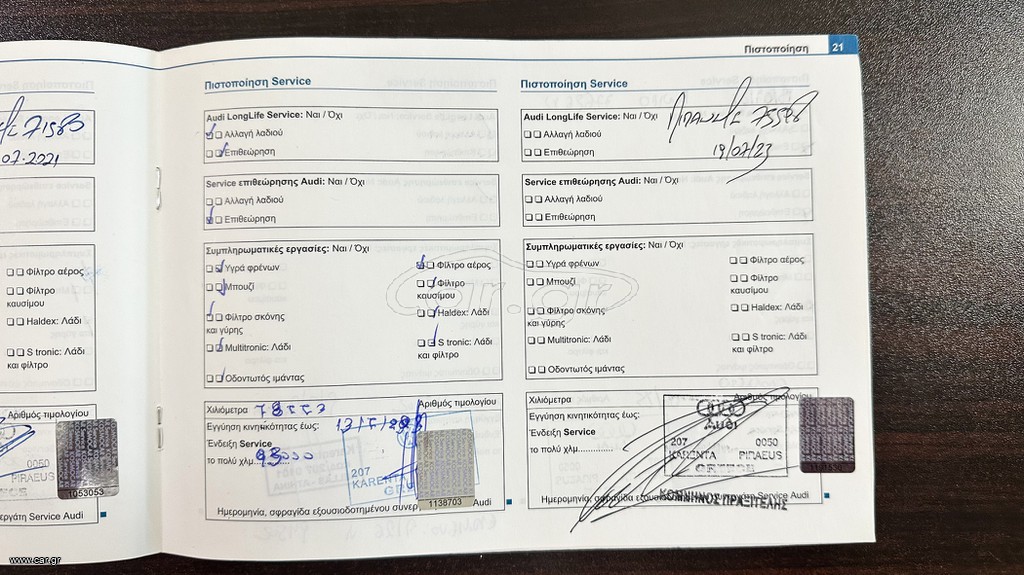 Πιστοποίηση 21
71583
07.2021
Φίλτρο αέρος
Φίλτρο
καυσίμου
Haldex: Λάδι
S tronic: Λάδι
και φίλτρο
Αριθμός τιμολογίου
0050
PIRAEUS
1053053
εργάτη Service Audi
Πιστοποίηση Service
Audi LongLife Service: Ναι / Όχι
Αλλαγή λαδιού
Επιθεώρηση
Service επιθεώρησης Audi: Ναι / Όχι
Αλλαγή λαδιού
Επιθεώρηση
Συμπληρωματικές εργασίες: Ναι / Όχι
Υγρά φρένων
Φίλτρο αέρος
Μπουζί
Φίλτρο
καυσίμου
Φίλτρο σκόνης
και γύρης
Haldex: Λάδι
Multitronic: Λάδι
S tronic: Λάδι
και φίλτρο
Οδοντωτός ιμάντας
Χιλιόμετρα
Αριθμός τιμολογίου
Εγγύηση κινητικότητας έως:
Ένδειξη Service
το πολύ χλμ. 93000
207
KARENTA
GR
1138703
Audi
Ημερομηνία, σφραγίδα εξουσιοδοτημένου συνερ
Πιστοποίηση Service
Audi LongLife Service: Ναι / Όχι
Αλλαγή λαδιού
Επιθεώρηση
19/07/23
Service επιθεώρησης Audi: Ναι / Όχι
Αλλαγή λαδιού
Επιθεώρηση
Συμπληρωματικές εργασίες: Ναι / Όχι
Υγρά φρένων
Φίλτρο αέρος
Μπουζί
Φίλτρο
καυσίμου
Φίλτρο σκόνης
και γύρης
Haldex: Λάδι
Multitronic: Λάδι
S tronic: Λάδι
και φίλτρο
Οδοντωτός ιμάντας
Χιλιόμετρα
Αριθμός τιμολογίου
Εγγύηση κινητικότητας έως:
Ένδειξη Service
το πολύ χλμ.
Audi
207 0050
KARENTA PIRAEUS
GREECE
ΚΟΝΝΗΝΟΣ ΠΡΑΞΙΤΕΛΗΣ
Ημερομηνία, σφραγίδα εξουσιοδοτημένου συνεργάτη Service Audi
car.gr
www.car.gr